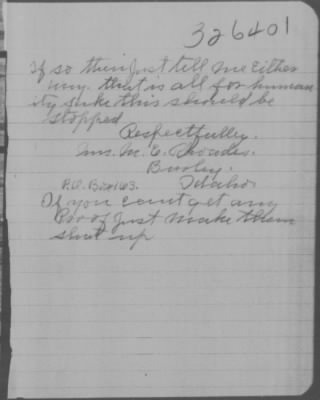 326401
If so then Just tell me Either
way. that is all for human
ity sake this should be
stopped
Respectfully.
Mrs. M. E. Rhoades.
Burley.
P.O. Box 163. Idaho.
If you can't get any
Proof Just make them
shut up